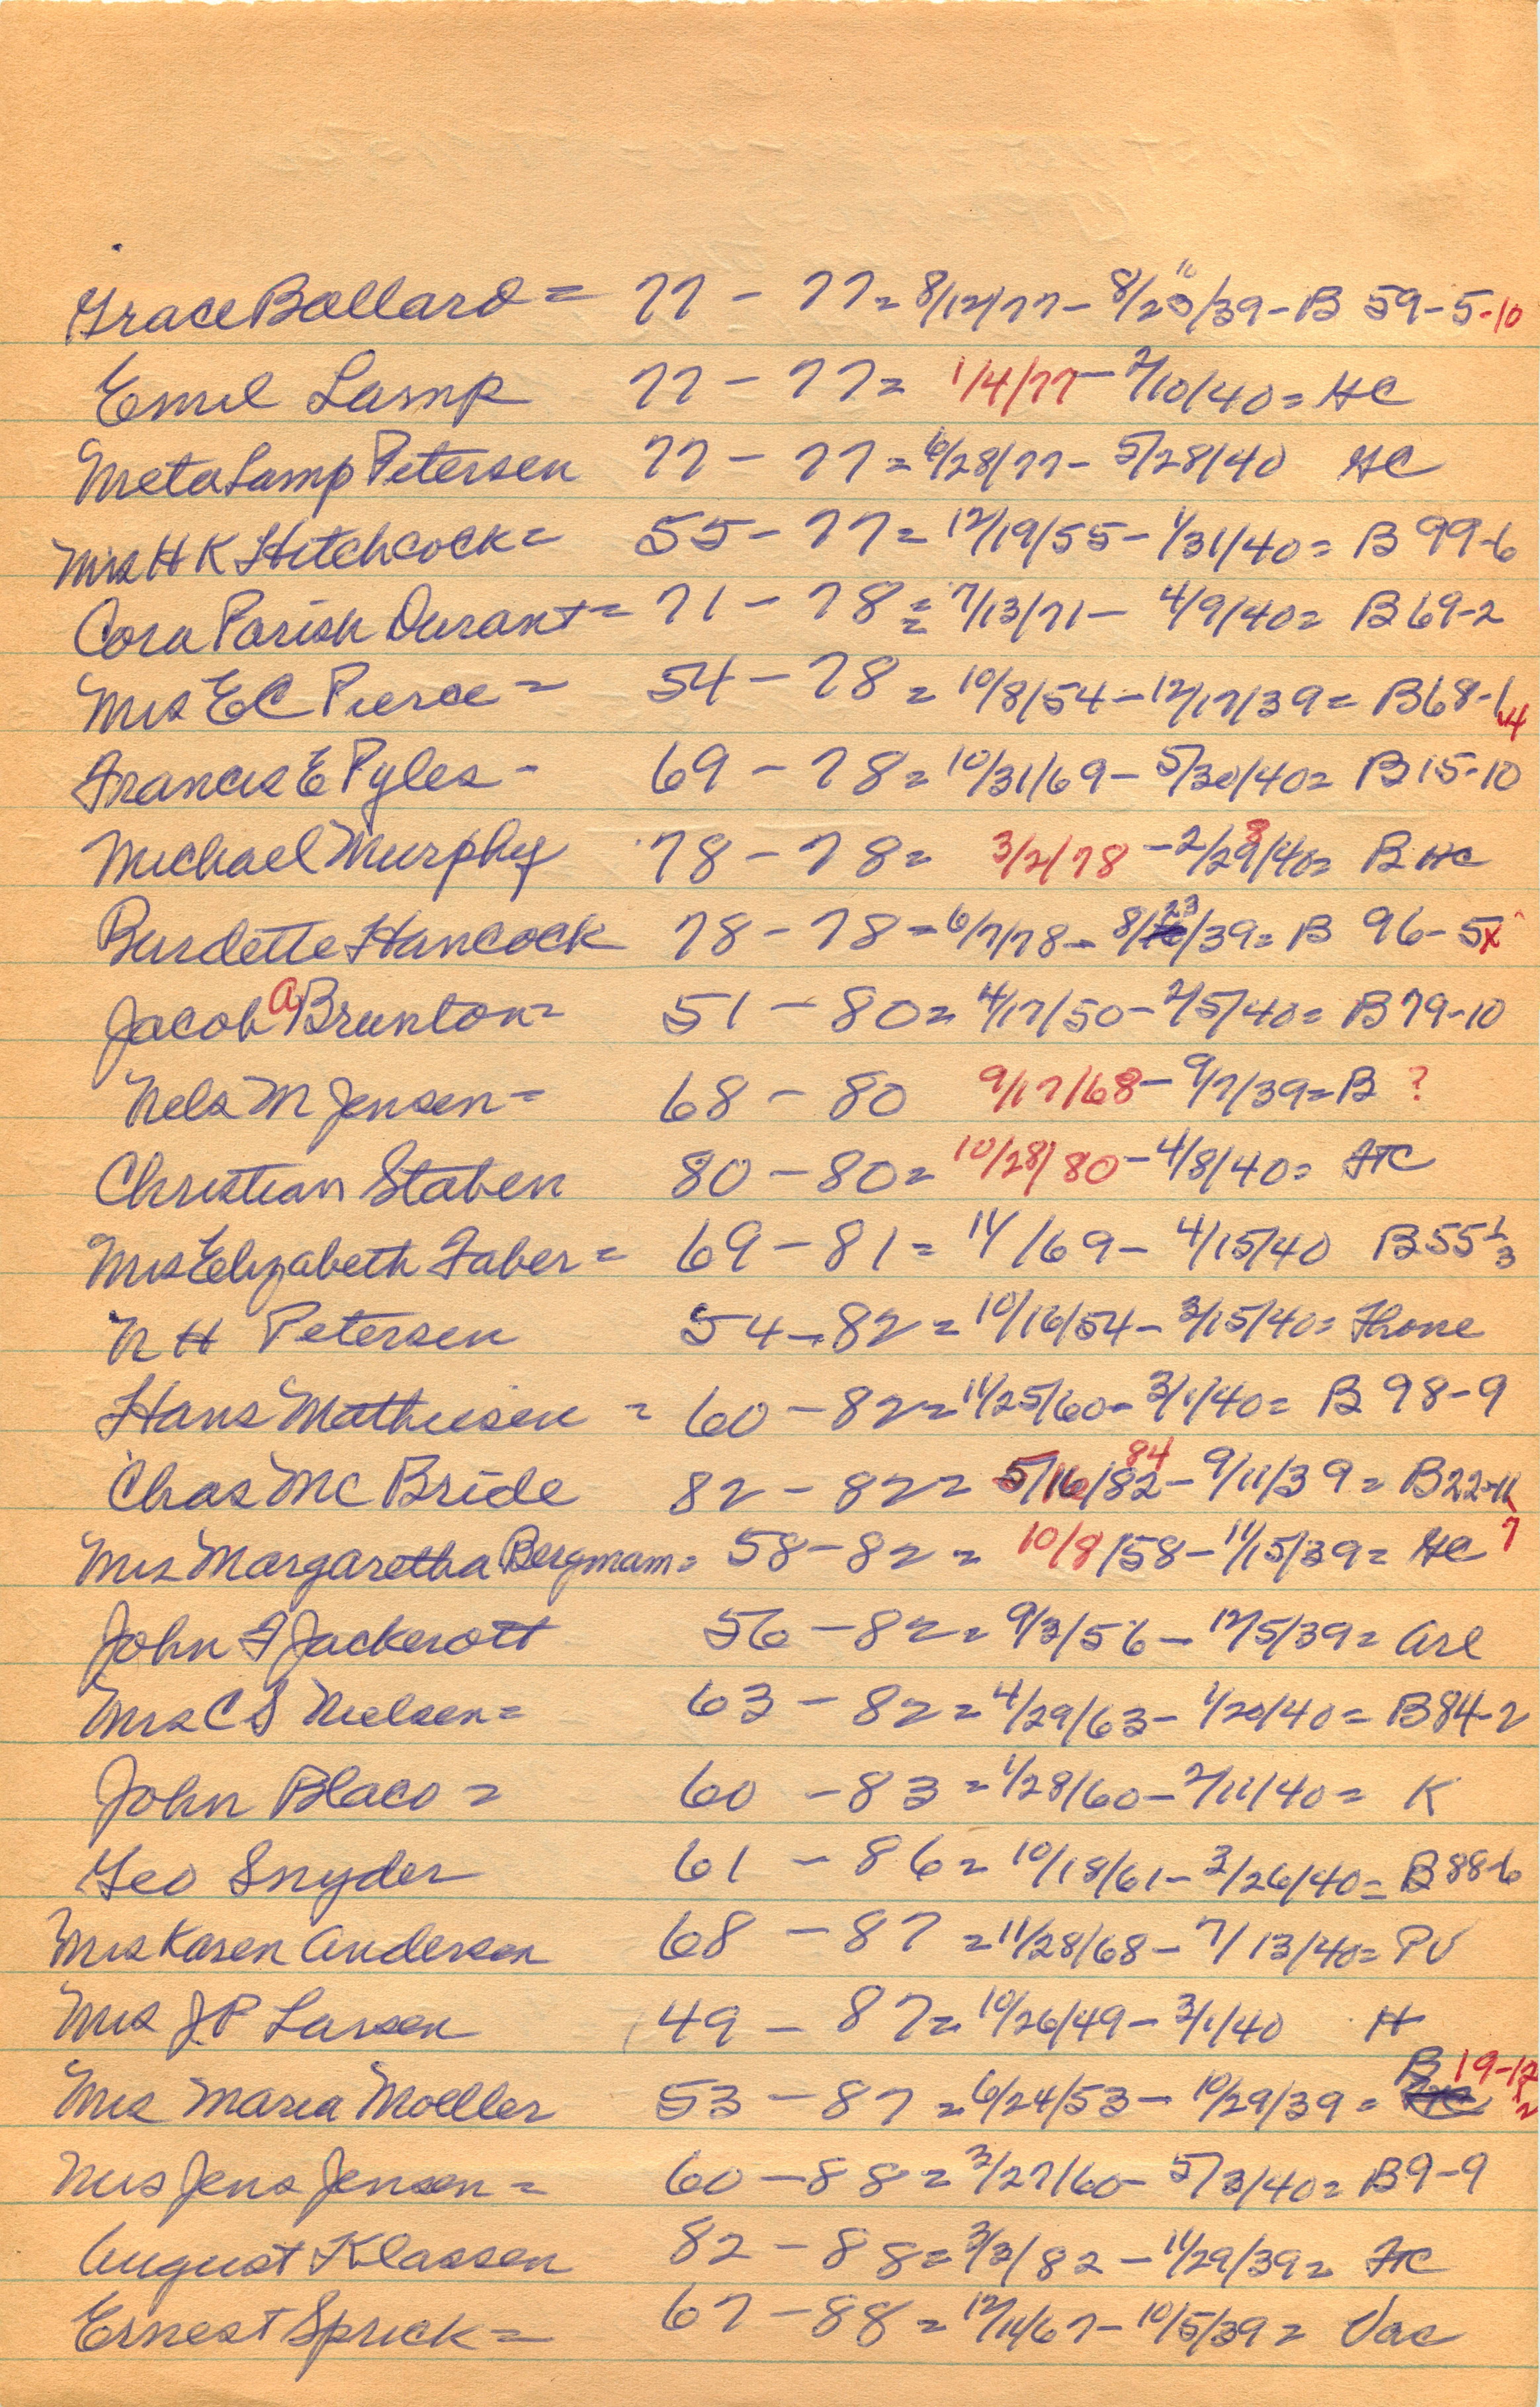 Grace Ballard = 77 - 77 = 8/12/77 - 8/23/39 - B 59-5-10
Emil Lamp 77 - 77 = 1/4/77 - 2/10/40 = HC
Meta Lamp Petersen 77 - 77 = 6/28/77 - 5/28/40 HC
Mrs H K Hitchcock = 55 - 77 = 12/19/55 - 1/31/40 = B 99-6
Cora Parish Durant = 71 - 78 = 7/13/71 - 4/9/40 = B 69-2
Mrs E C Pierce = 54 - 78 = 10/8/54 - 12/17/39 = B 68-1
Francis E Pyles - 69 - 78 = 10/31/69 - 5/30/40 = B 15-10
Michael Murphy 78 - 78 = 3/2/78 - 2/28/40 = B HC
Burdette Hancock 78 - 78 = 6/7/78 - 8/23/39 = B 96-5x
Jacob A Brunton = 51 - 80 = 4/17/50 - 2/5/40 = B 79-10
Nels M Jensen = 68 - 80 9/17/68 - 9/7/39 = B ?
Christian Staben 80 - 80 = 10/28/80 - 4/8/40 = HC
Mrs Elizabeth Faber = 69 - 81 = 11/69 - 4/15/40 B 55 1/3
N H Petersen 54 - 82 = 10/16/54 - 3/15/40 = Thone
Hans Mathiesen = 60 - 82 = 11/25/60 - 3/1/40 = B 98-9
Chas McBride 82 - 82 = 5/16/82 84 - 9/11/39 = B 22-11
Mrs Margaretha Bergmann = 58 - 82 = 10/8/58 - 11/15/39 = HC ?
John F Jackerott 56 - 82 = 9/3/56 - 12/5/39 = Arl
Mrs C S Nielsen = 63 - 82 = 4/29/63 - 1/20/40 = B 84-2
John Blaco = 60 - 83 = 1/28/60 - 2/11/40 = K
Geo Snyder 61 - 86 = 10/18/61 - 3/26/40 = B 88-6
Mrs Karen Anderson 68 - 87 = 11/28/68 - 7/13/40 = PV
Mrs J P Larsen 49 - 87 = 10/26/49 - 3/1/40 H
Mrs Maria Moeller 53 - 87 = 6/24/53 - 10/29/39 = B 19-12
Mrs Jens Jensen = 60 - 88 = 3/27/60 - 5/3/40 = B 9-9
August Klassen 82 - 88 = 3/3/82 - 11/29/39 = HC
Ernest Sprick = 67 - 88 = 12/14/67 - 10/5/39 = Vac